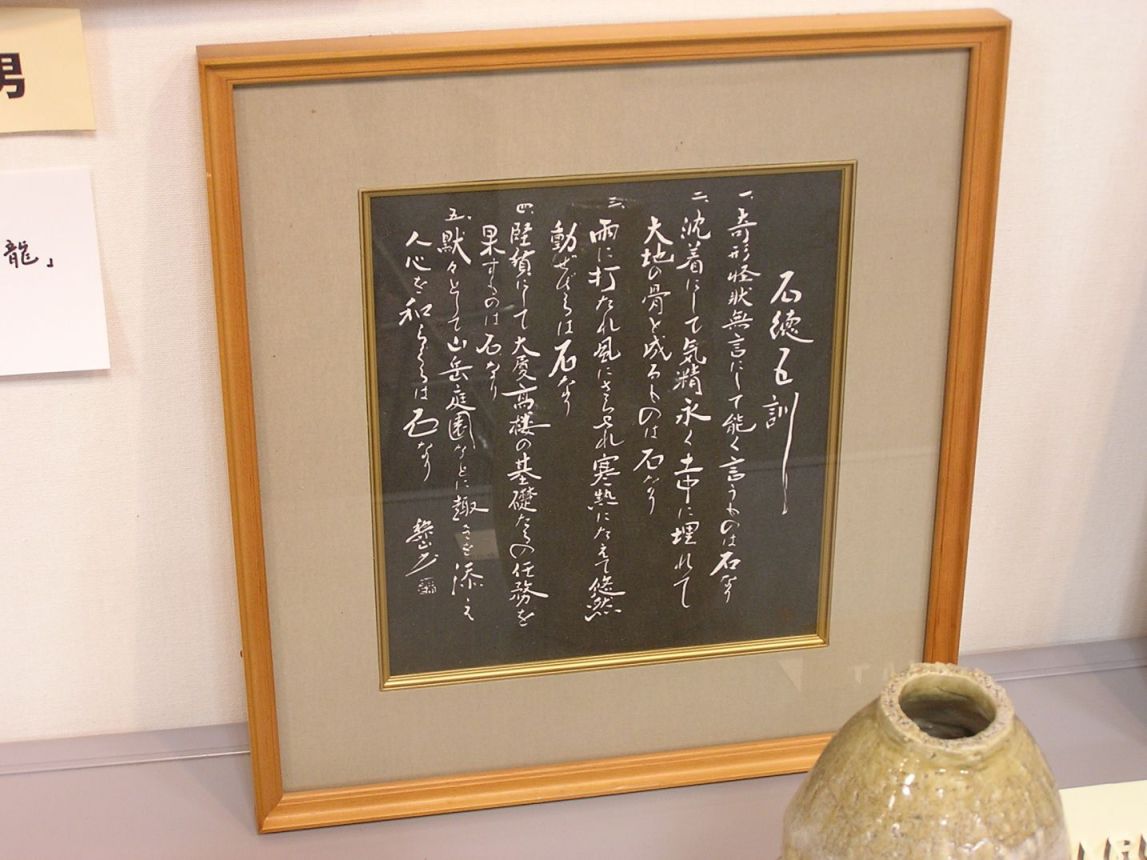 石徳五訓
一、奇形怪状無言にして能く言うものは石なり
二、沈着にして気精永く土中に埋れて
大地の骨と成るものは石なり
三、雨に打たれ風にさらされ寒熱にたえて悠然
動ぜざるは石なり
四、堅質にして大廈高楼の基礎たるの任務を
果すものは石なり
五、黙々として山岳庭園などに趣きを添え
人心を和らぐるは石なり
男
龍」